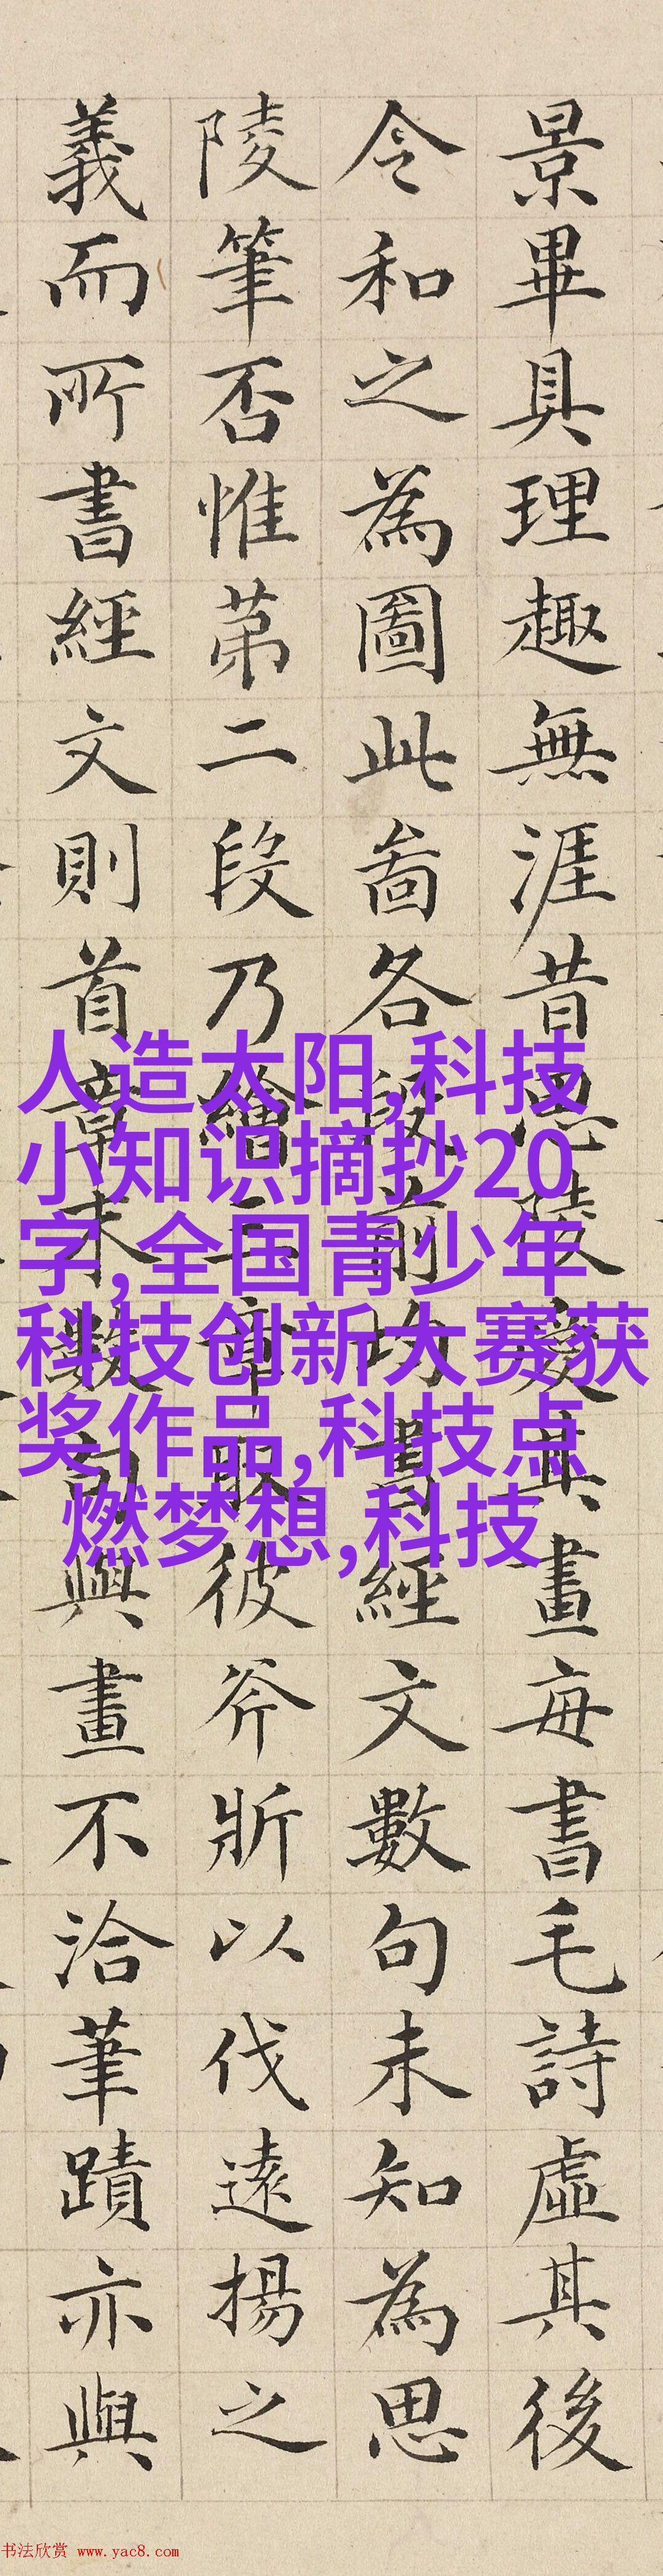 景畢具理趣無涯昔思陵愛其畫每書毛詩虛其後
令和之為圖此啚各段前均書經文數句未知為思
陵筆否惟苐二段乃繪三章取彼斧斨以伐遠揚之
義而所書經文則首章末數句與畫不洽筆蹟亦與
人造太阳,科技
小知识摘抄20
字,全国青少年
科技创新大赛获
奖作品,科技点
燃梦想,科技
书法欣赏 www.yac8.com